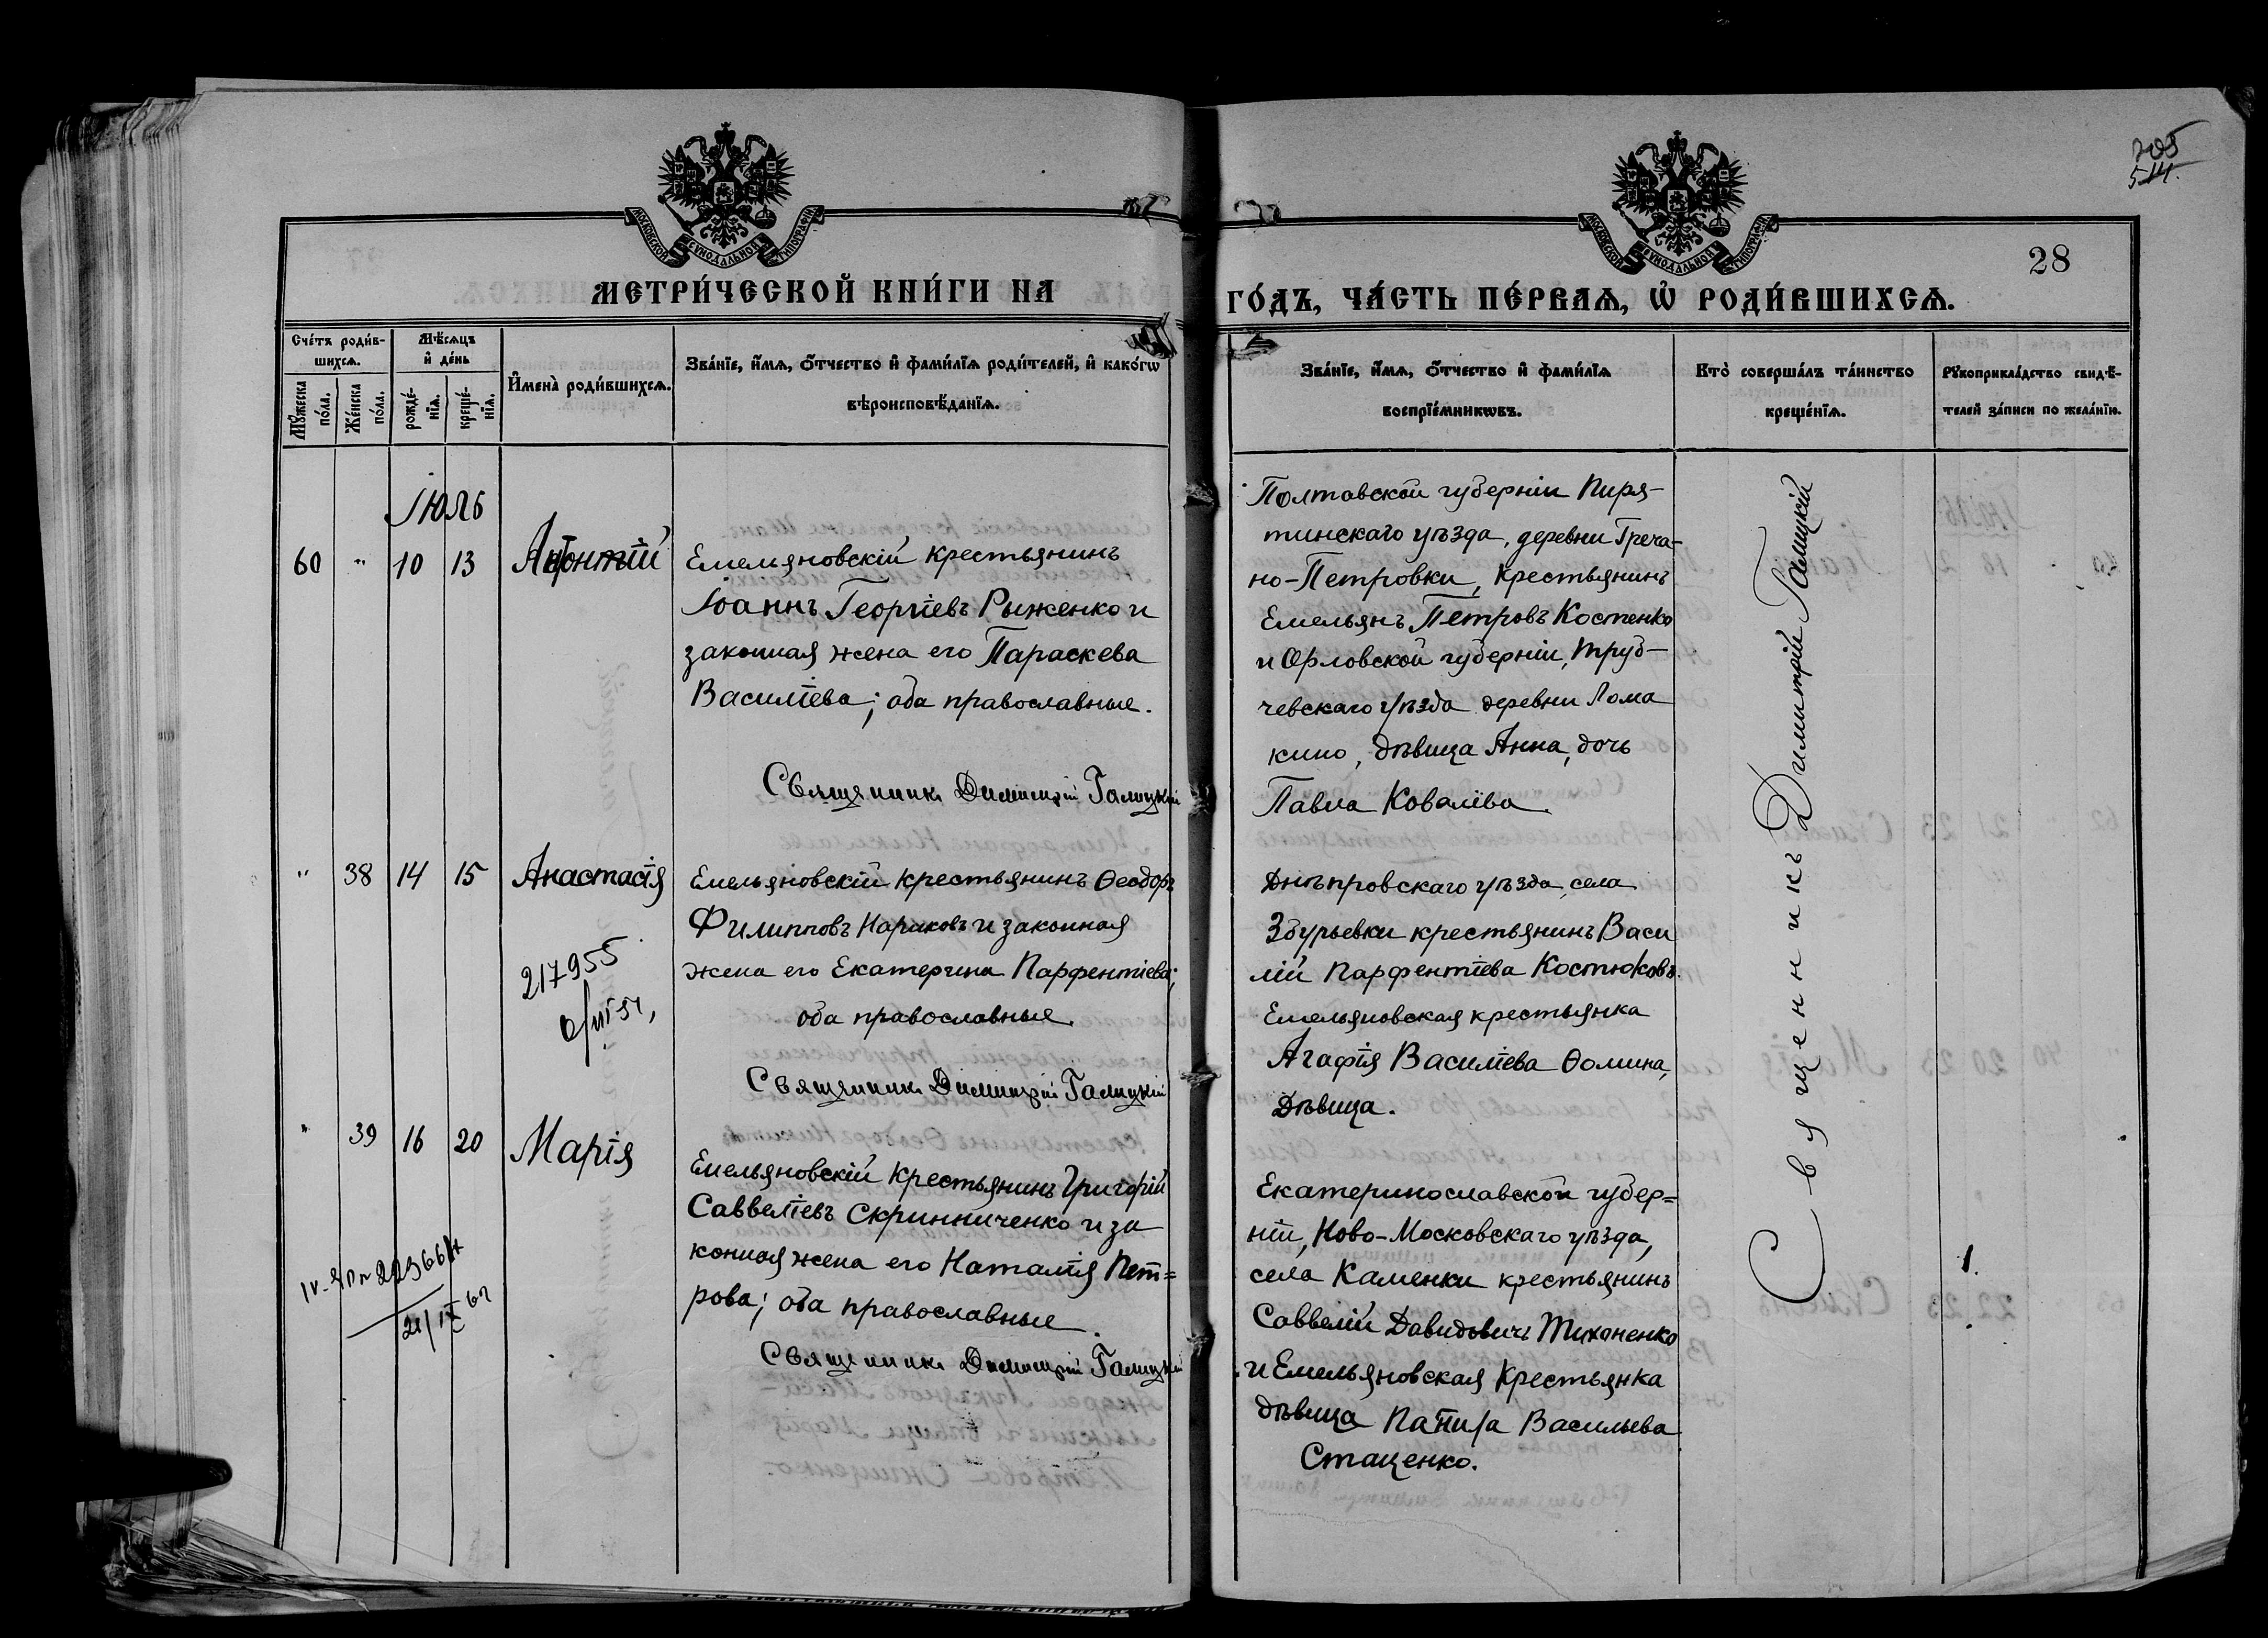 705
514.
МОСКОВСКОЙ СУНОДАЛЬНОЙ ТИПОГРАФІИ
МОСКОВСКОЙ СУНОДАЛЬНОЙ ТИПОГРАФІИ
28
МЕТРИ́ЧЕСКОЙ КНИ́ГИ НА
ГО́ДЪ, ЧА́СТЬ ПЕ́РВАѦ, Ѡ҆ РОДИ́ВШИХСѦ.
Сче́тъ роди́в-
шихсѧ.
Мѣ́сѧцъ
и҆ де́нь
Мꙋ́жеска
по́ла.
Же́нска
по́ла.
рожде́-
нїѧ.
креще́-
нїѧ.
И҆мена̀ роди́вшихсѧ.
Зва́нїе, и҆́мѧ, ѻ҆́тчество и҆ фами́лїѧ роди́телей, и҆ како́гѡ
вѣроисповѣ́данїѧ.
Зва́нїе, и҆́мѧ, ѻ҆́тчество и҆ фами́лїѧ
воспрїе́мникѡвъ.
Кто̀ соверша́лъ та́инство
креще́нїѧ.
Рꙋкоприкла́дство свидѣ́-
телей за́писи по жела́нїю.
Іюль
60 " 10 13 Антоній
Емельяновскій крестьянинъ
Іоаннъ Георгіевъ Рыженко и
законная жена его Параскева
Василіева; оба православные.
Священникъ Димитрій Галицкій
Полтавской губерніи Пиря-
тинскаго уѣзда, деревни Греча-
но-Петровки, крестьянинъ
Емельянъ Петровъ Костенко
и Орловской губерніи, Труб-
чевскаго уѣзда деревни Лома
кино, дѣвица Анна, дочь
Павла Ковалева
Священникъ Димитрій Галицкій
" 38 14 15 Анастасія
Емельяновскій крестьянинъ Ѳеодоръ
Филипповъ Нариковъ и законная
жена его Екатерина Парфентіева;
оба православные.
Священникъ Димитрій Галицкій
217955
Днѣпровскаго уѣзда, села
Збурьевки крестьянинъ Васи
лій Парфентіева Костюковъ.
Емельяновская крестьянка
Агафія Василіева Ѳомина,
дѣвица.
" 39 16 20 Марія
Емельяновскій крестьянинъ Григорій
Саввеліевъ Скринниченко и за
конная жена его Наталія Пет=
рова; оба православные.
Священникъ Димитрій Галицкій
21/IX
Екатеринославской губер=
ніи, Ново-Московскаго уѣзда,
села Каменки крестьянинъ
Саввелій Давидовичъ Тихоненко
и Емельяновская крестьянка
дѣвица Васильева
Стаценко.